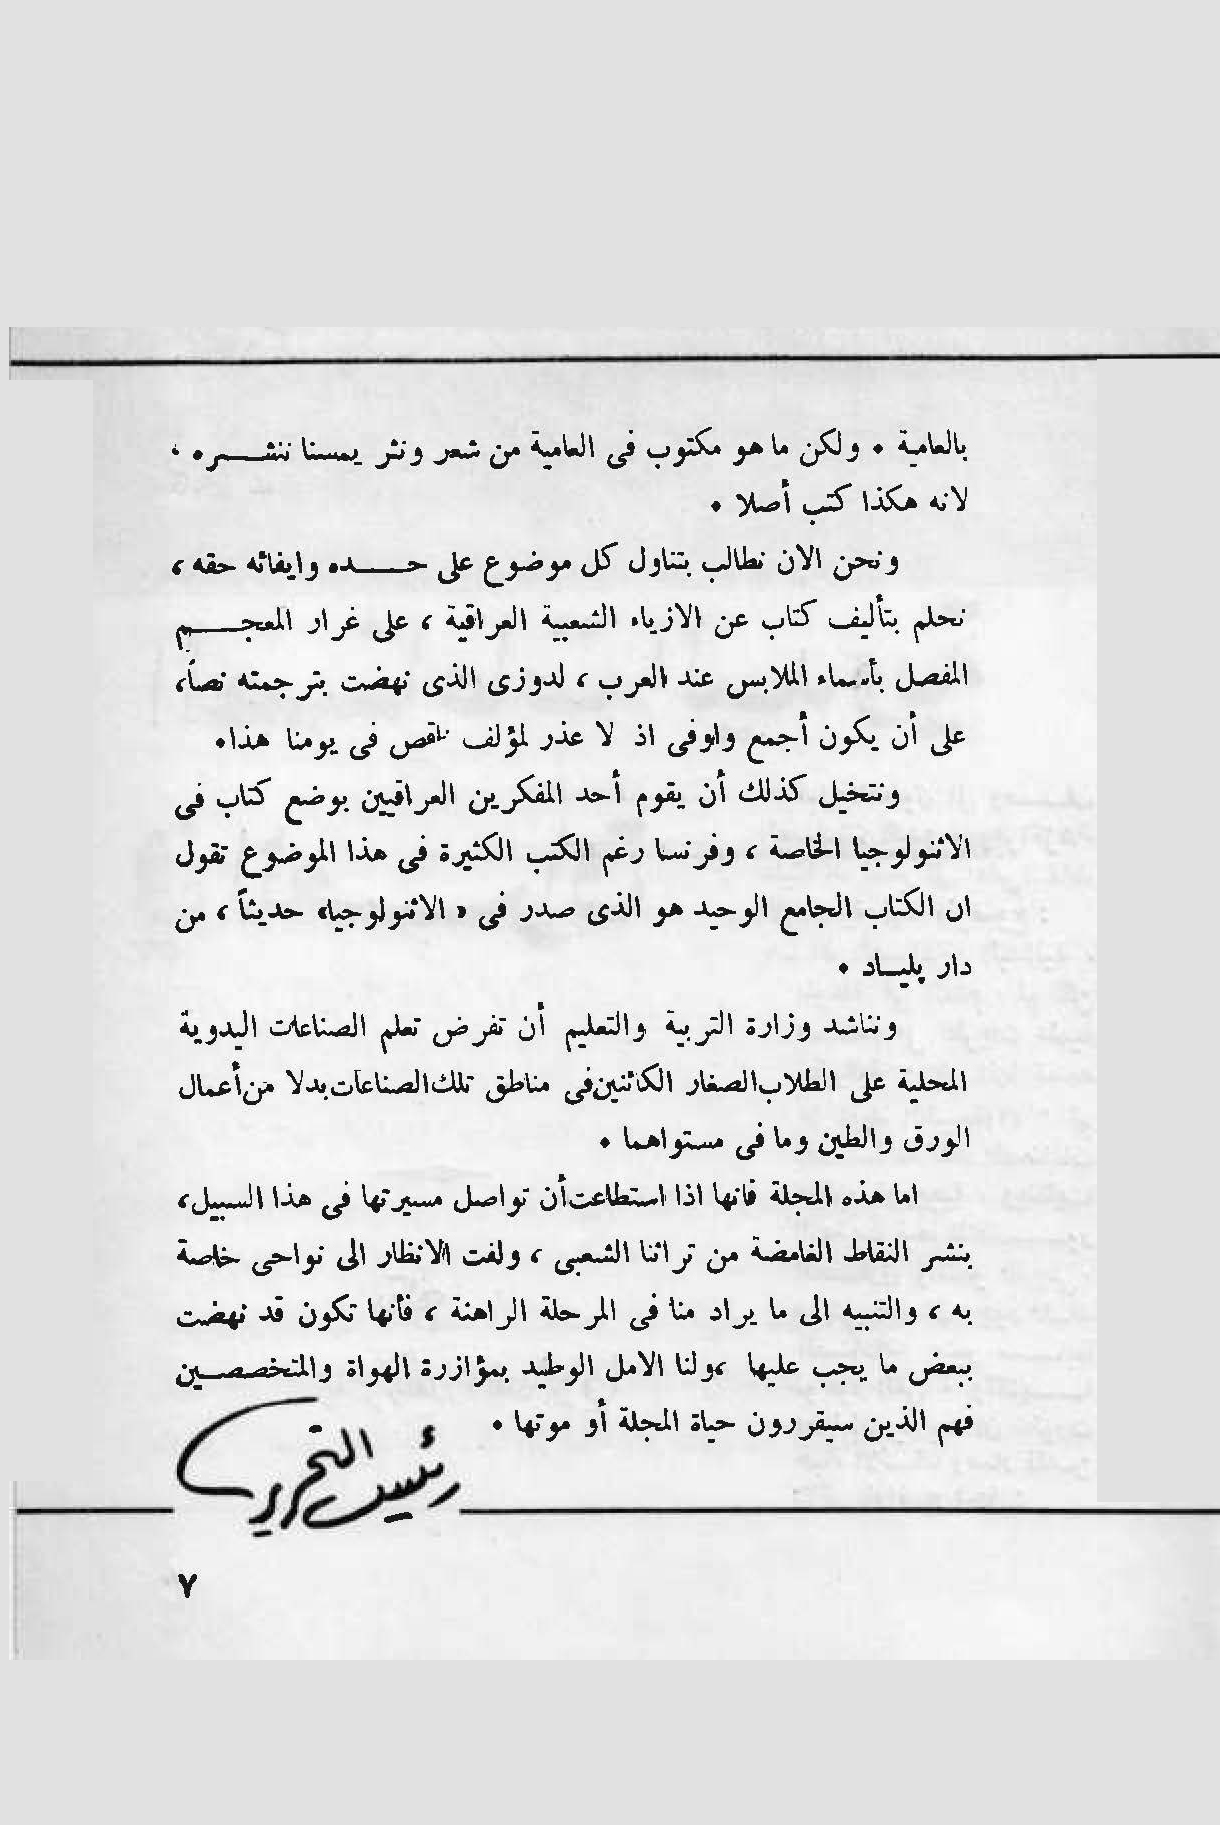 بالعامية . ولكن ما هو مكتوب فى العامية من شعر ونثر يمسنا ننشره ،
لانه هكذا كتب أصلا .
ونحن الان نطالب بتناول كل موضوع على حده وايفائه حقه ،
نحلم بتأليف كتاب عن الازياء الشعبية العراقية ، على غرار المعجم
المفصل بأسماء الملابس عند العرب ، لدوزى الذى نهضت بترجمته نصاً،
على أن يكون أجمع واوفى اذ لا عذر لمؤلف ناقص فى يومنا هذا.
ونتخيل كذلك أن يقوم أحد المفكرين العراقيين بوضع كتاب فى
الاثنولوجيا الخاصة ، وفرنسا رغم الكتب الكثيرة فى هذا الموضوع تقول
ان الكتاب الجامع الوحيد هو الذى صدر فى « الاثنولوجيا» حديثاً ، من
دار پلياد .
ونناشد وزارة التربية والتعليم أن تفرض تعلم الصناعات اليدوية
المحلية على الطلاب الصغار الكائنين فى مناطق تلك الصناعات بدلا من أعمال
الورق والطين وما فى مستواهما .
اما هذه المجلة فانها اذا استطاعت أن تواصل مسيرتها فى هذا السبيل،
بنشر النقاط الغامضة من تراثنا الشعبى ، ولفت الانظار الى نواحى خاصة
به ، والتنبيه الى ما يراد منا فى المرحلة الراهنة ، فأنها تكون قد نهضت
ببعض ما يجب عليها ،ولنا الامل الوطيد بمؤازرة الهواة والمتخصصين
فهم الذين سيقررون حياة المجلة أو موتها .
رئيس التحرير
٧